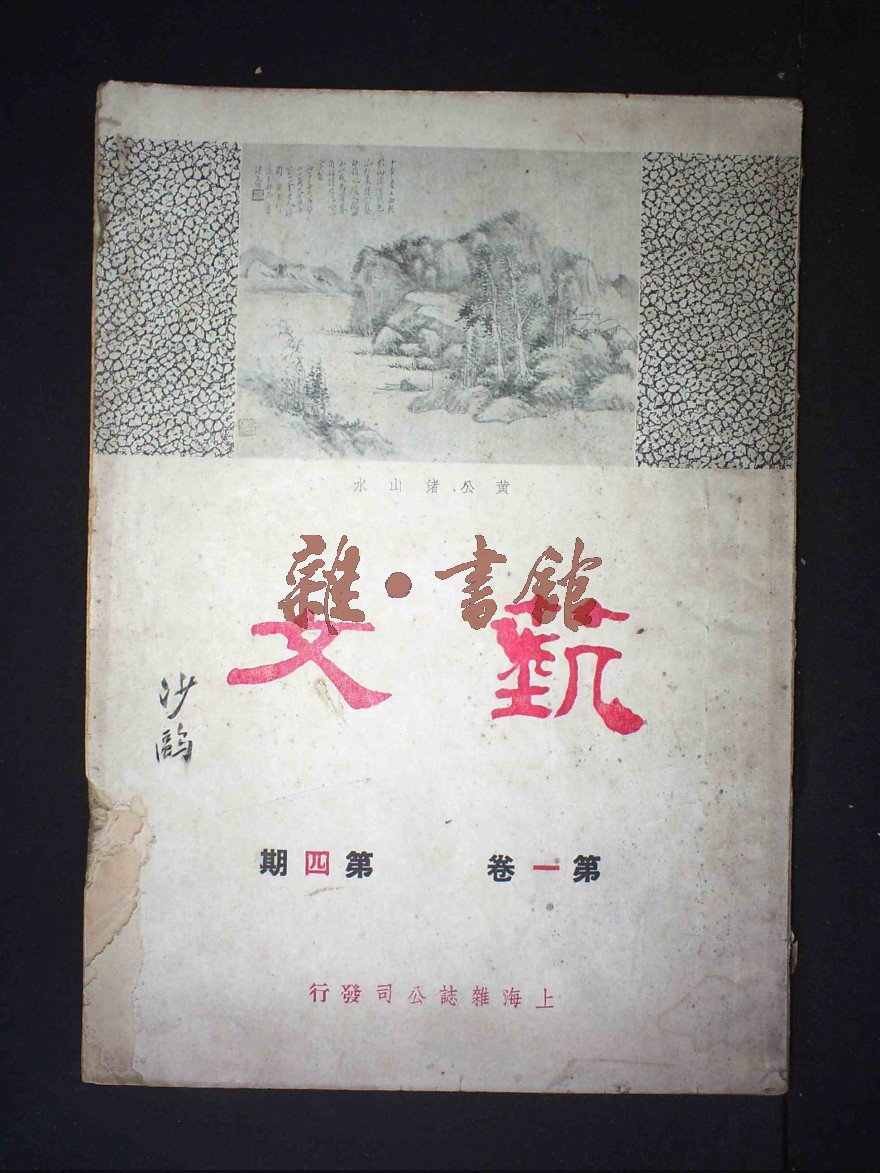 黄公渚山水
雜·書館
藝文
沙鷗
第一卷 第四期
上海雜誌公司發行